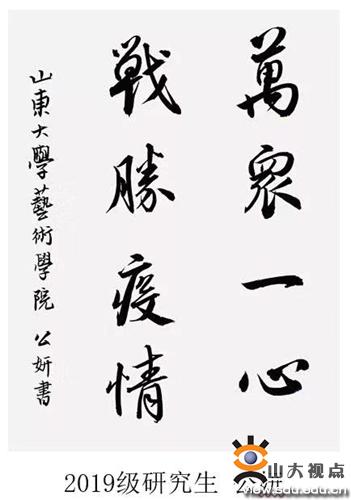 萬眾一心
戰勝疫情
山東大學藝術學院 公妍書
山大视点
www.view.sdu.edu.cn
2019级研究生 公妍